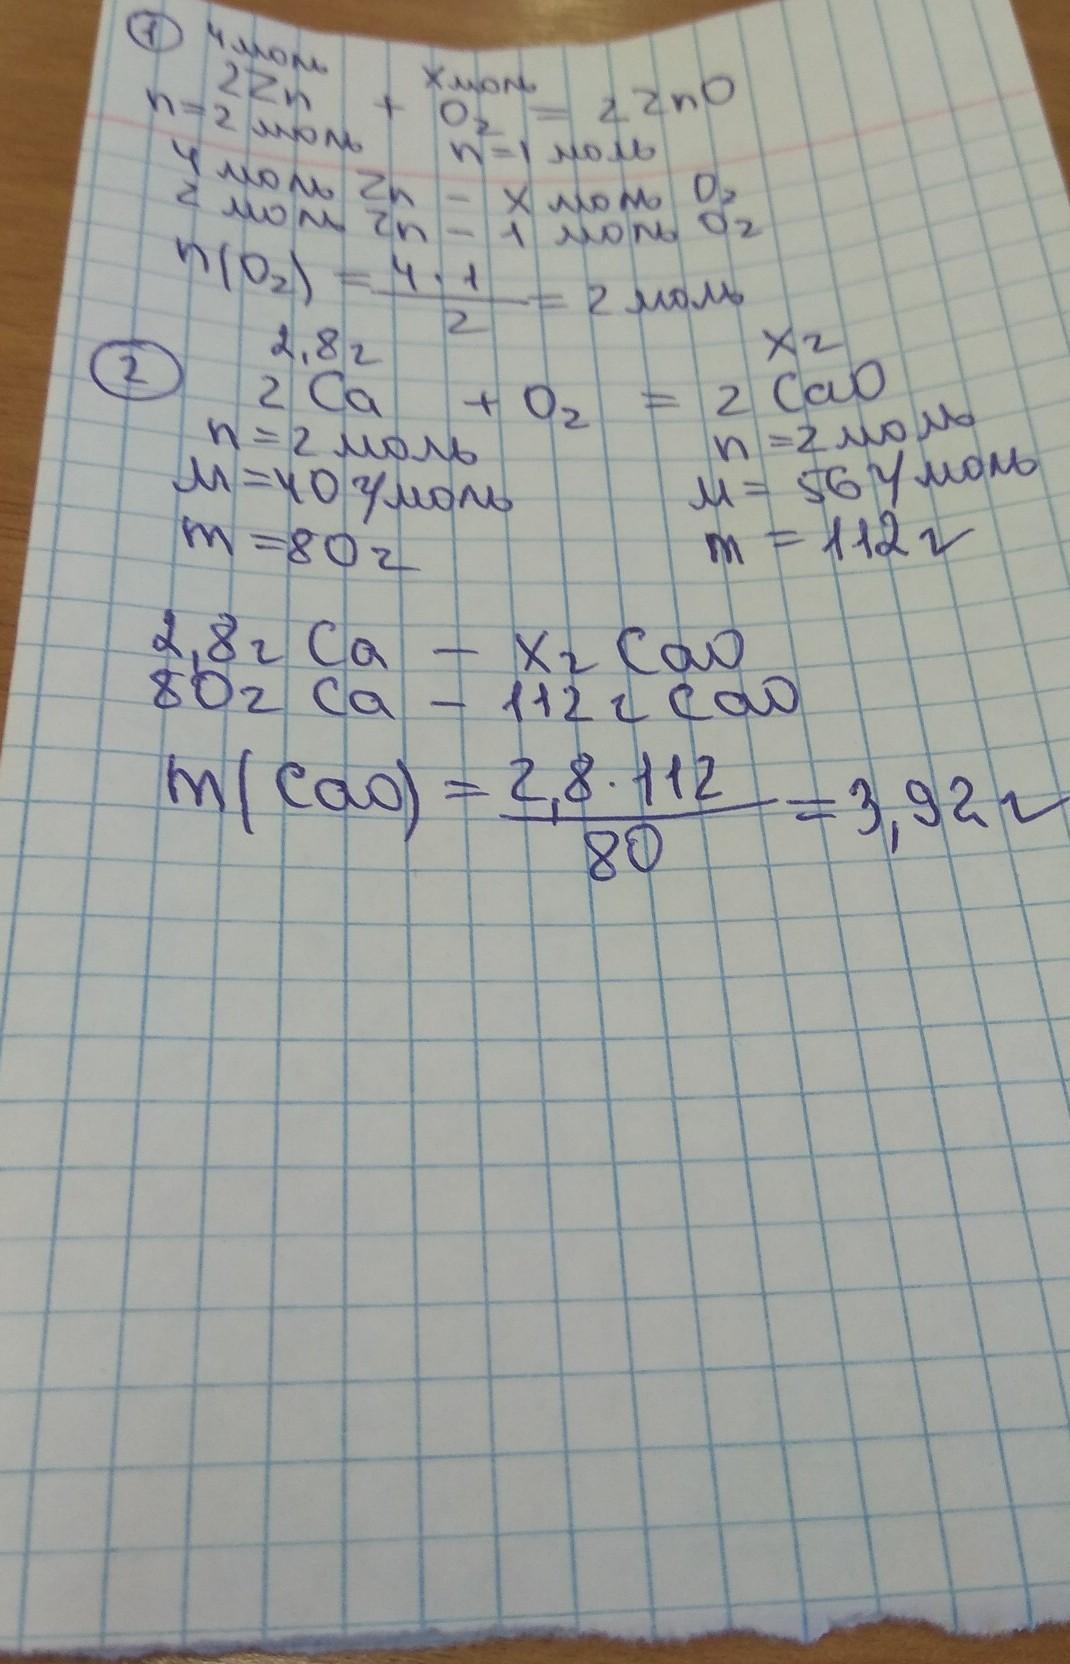 1 4 моль x моль
2Zn + O₂ = 2ZnO
n=2 моль n=1 моль
4 моль Zn – x моль O₂
2 моль Zn – 1 моль O₂
n(O₂) = 4·1/2 = 2 моль
2 2,8г xг
2Ca + O₂ = 2CaO
n=2 моль n=2 моль
M=40 г/моль M= 56 г/моль
m=80г m = 112г
2,8г Ca – xг CaO
80г Ca – 112г CaO
m(CaO) = 2,8·112/80 = 3,92г